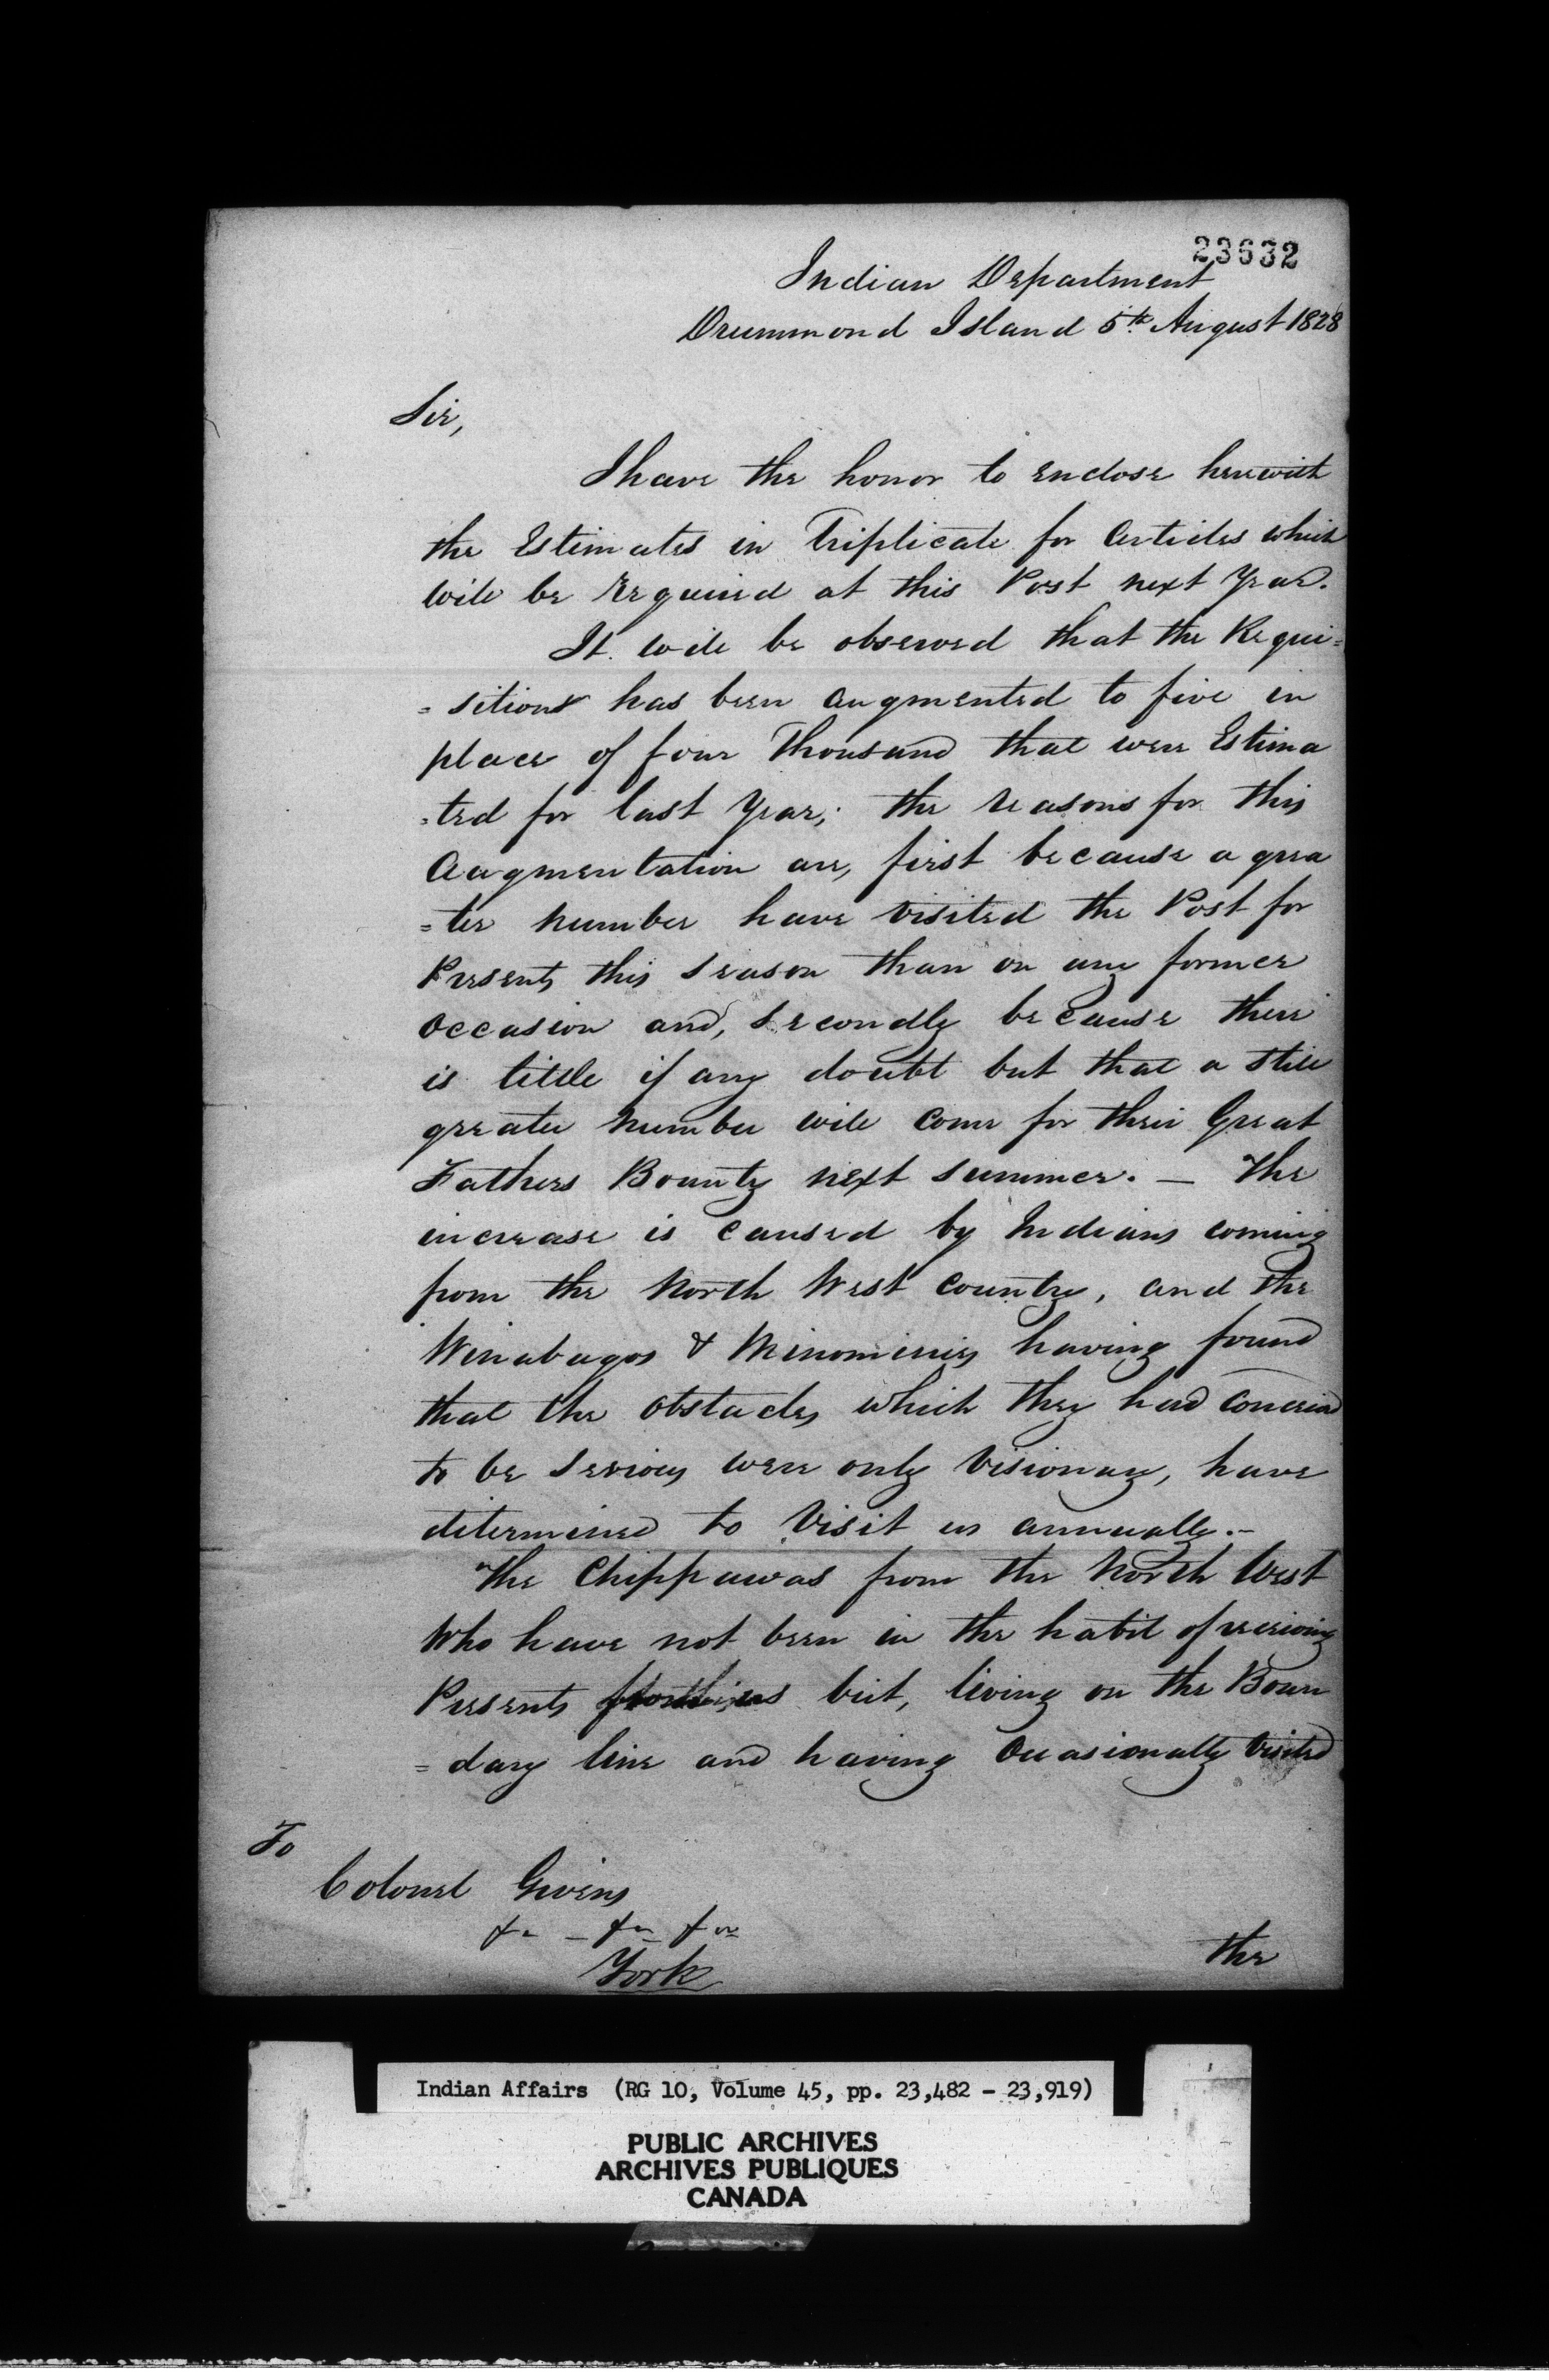 23632
Indian Department
Drummond Island 5th August 1828
Sir,
I have the honor to enclose herewith
the Estimates in Triplicate for Articles which
will be required at this Post next Year.
It will be observed that the Requi=
=sitions has been augmented to five in
place of four Thousand that were Estima
=ted for last Year; the reasons for this
Augmentation are, first because a grea
=ter number have visited the Post for
Presents this season than on any former
occasion and, secondly because there
is little if any doubt but that a still
greater number will come for their Great
Fathers Bounty next summer. — The
increase is caused by Indians coming
from the North West Country, and the
Winabagos & Minominies having found
that the obstacles which they had conceived
to be serious were only visionary, have
determined to visit us annually.—
The Chippawas from the North West
who have not been in the habit of receiving
Presents but, living on the Boun
=dary line and having occasionally visited
To
Colonel Givins
&c — &c &c
York
the
Indian Affairs (RG 10, Volume 45, pp. 23,482 - 23,919)
PUBLIC ARCHIVES
ARCHIVES PUBLIQUES
CANADA